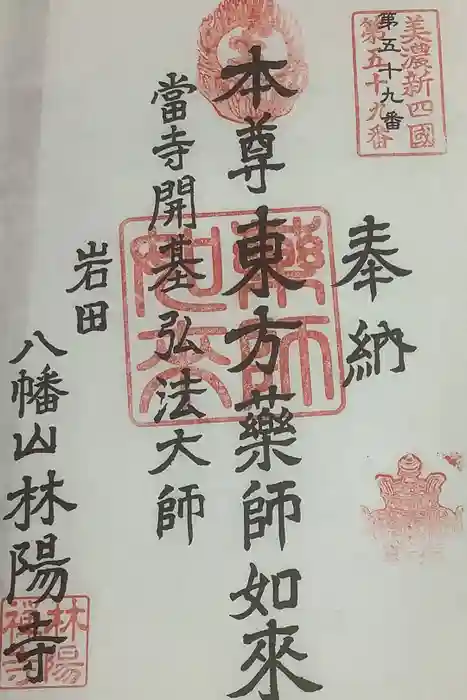 美濃新四國
第五十九番
第五十九番
奉納
本尊東方藥師如來
藥師如來
當寺開基弘法大師
岩田
八幡山林陽寺
林陽
禅寺